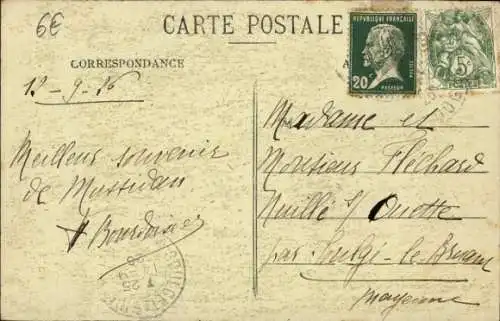 6€
CARTE POSTALE
CORRESPONDANCE
A
12-9-26
REPUBLIQUE FRANÇAISE
20c
PASTEUR
5c
Madame et
Monsieur Fléchard
Nuillé s/ Ouette
par Soulgé-le-Bruant
Mayenne
Meilleur souvenir
de Mussidan